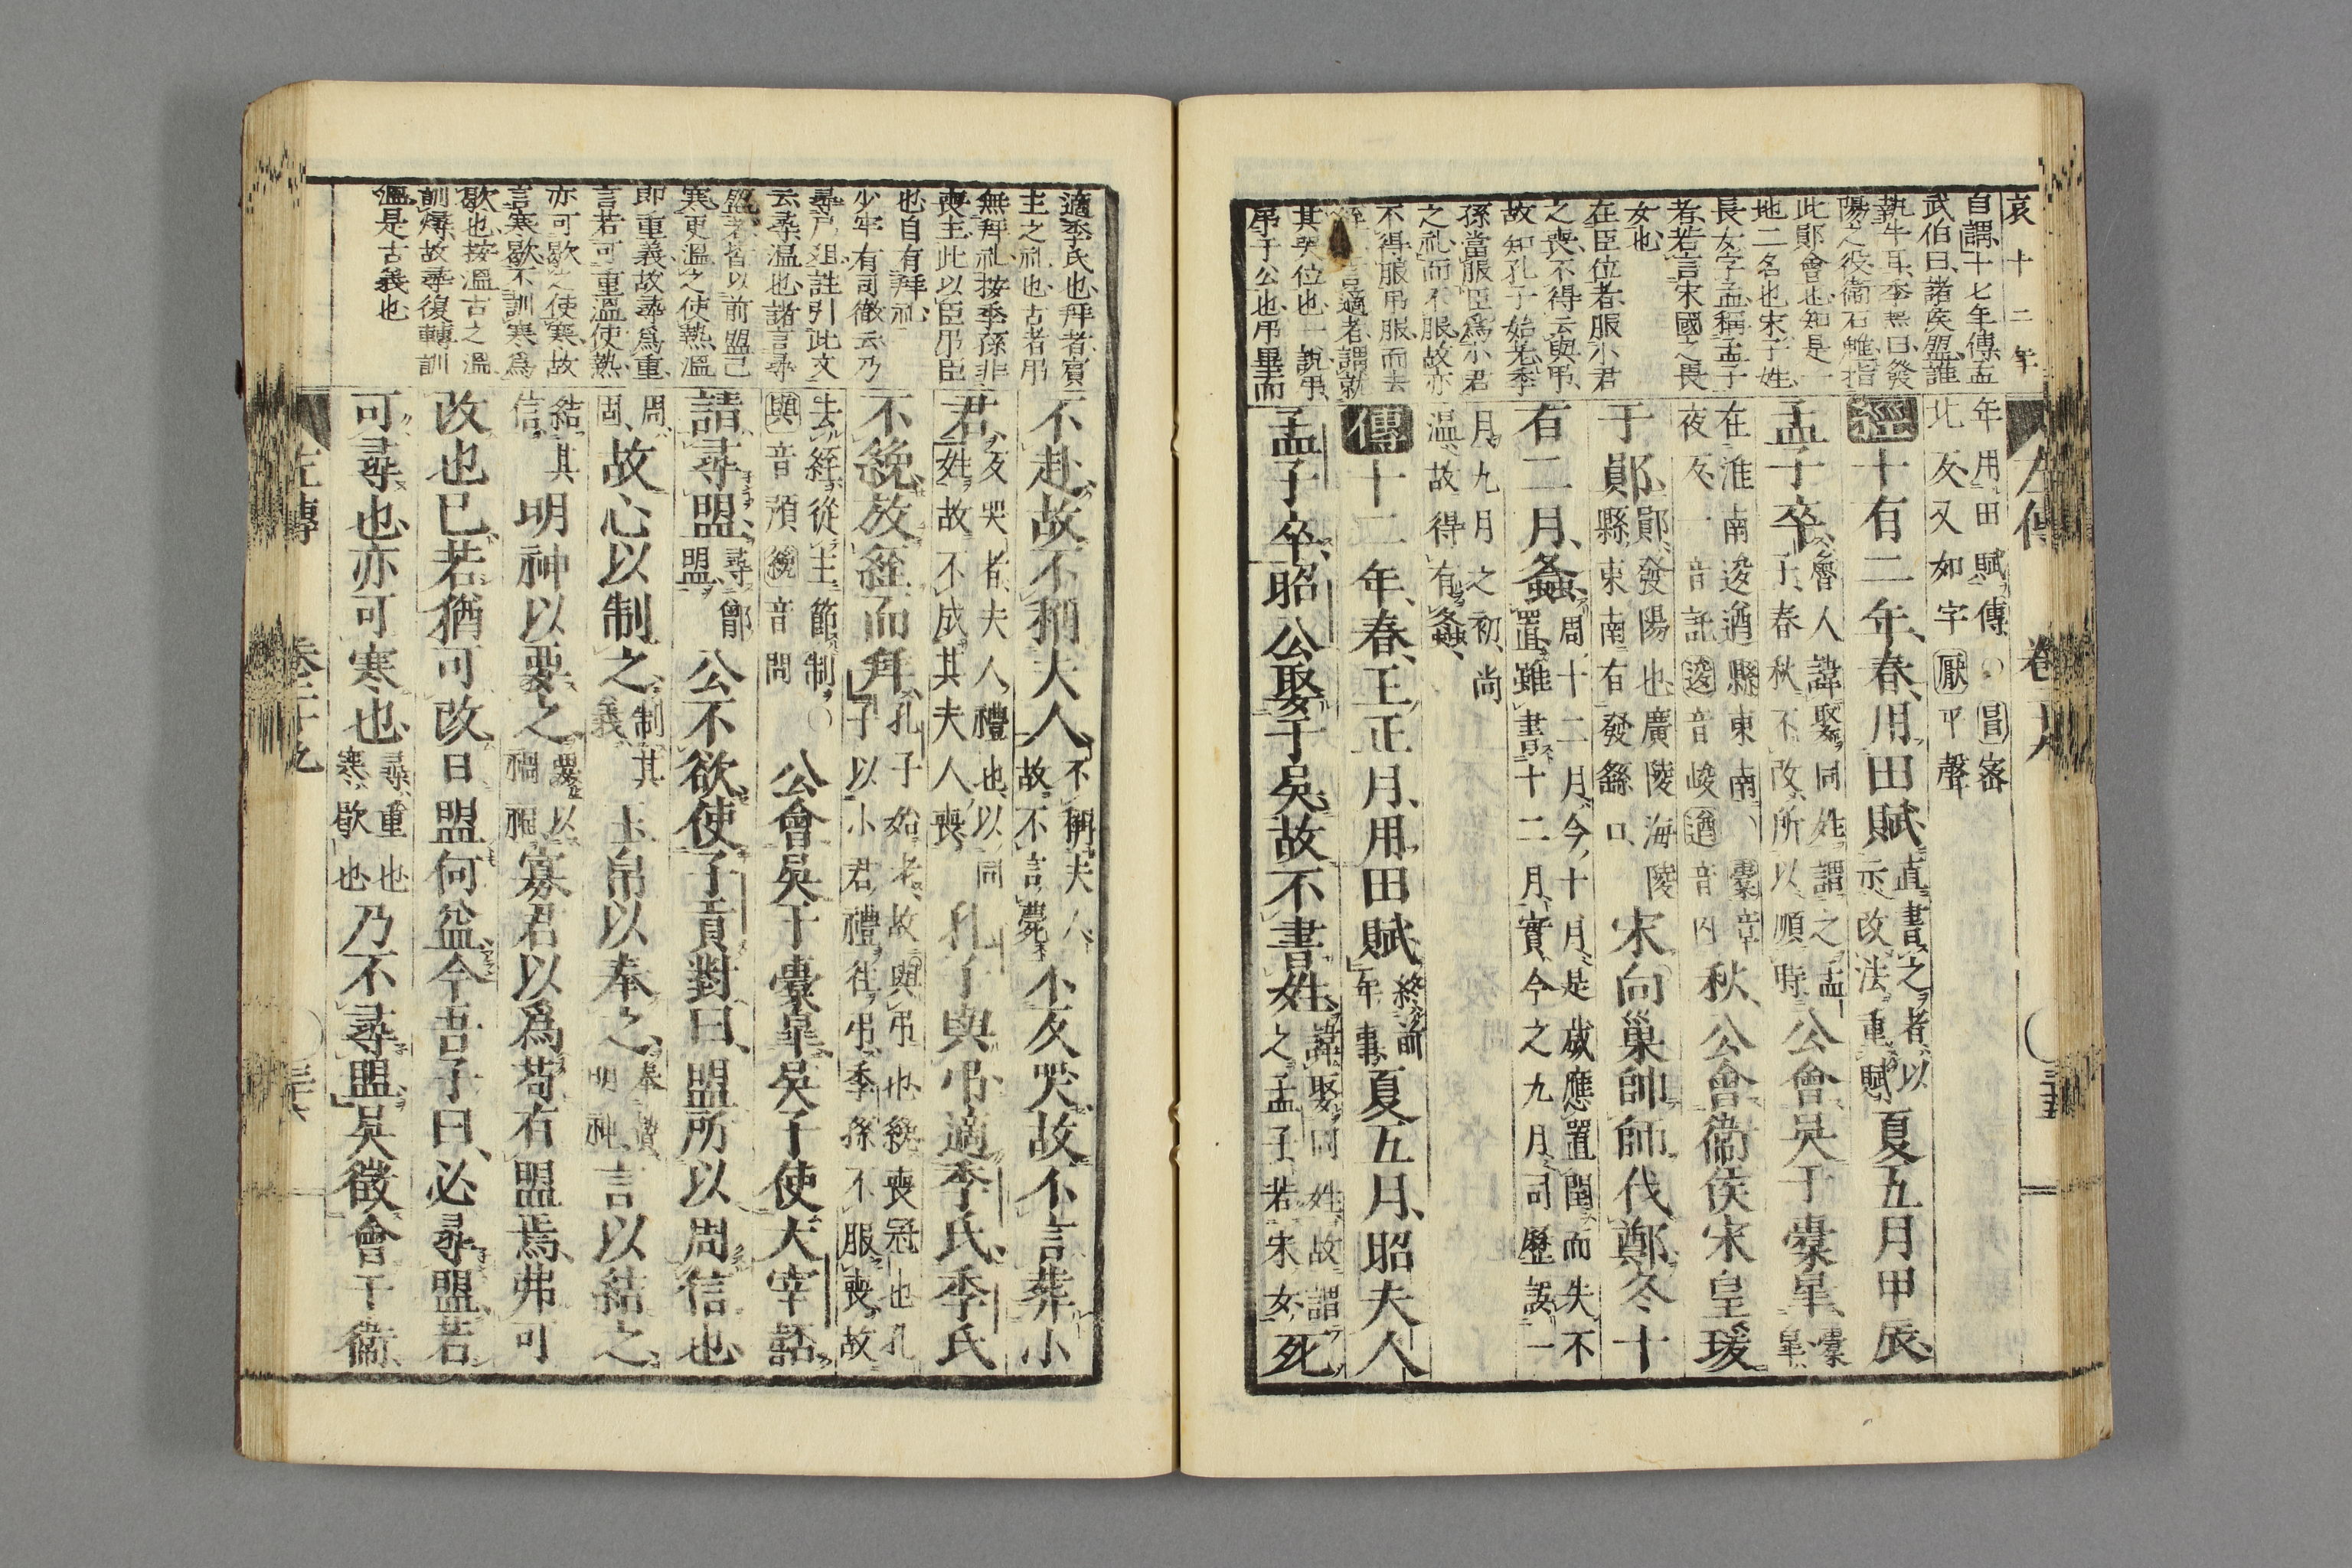 哀十二年
自謂十七年傳孟
武伯曰諸矦盟誰
執牛耳季羔曰發
陽之役衛石魋指
此鄖會也知是一
地二名也宋子姓
長女字孟稱孟子
者若言宋國之長
女也
在臣位者服小君
之喪不得云與弔
故知孔子始老季
孫當服臣爲小君
之礼而不服故亦
不得服弔服而去
絰言適者謂就
其哭位也一說弔
弔于公也弔畢而
左傳 卷二十九
年用田賦傳○昌宻
北反又如字厭平聲
經十有二年春用田賦直書之者以
示改法重賦夏五月甲辰
孟子卒魯人諱娶同姓謂之孟
子春秋不改所以順時公會吳于橐皐橐皐
在淮南逡遒縣東南○橐章
夜反一音託逡音峻遒音囚秋公會衛侯宋皇瑗
于鄖鄖發陽也廣陵海陵
縣東南有發繇口宋向巢帥師伐鄭冬十
有二月螽周十二月今十月是歲應置閏而失不
置雖書十二月實今之九月司歷誤一
月九月之初尚
温故得有螽
傳十二年春王正月用田賦終前
年事夏五月昭夫人
孟子卒昭公娶于吳故不書姓諱娶同姓故謂
之孟子若宋女死
適季氏也拜者賓
主之礼也古者弔
無拜礼按季孫非
喪主此以臣弔臣
也自有拜礼
少牢有司徹云乃
尋尸俎註引此文
云尋温也諸言尋
盟者皆以前盟已
寒更溫之使熱溫
即重義故尋爲重
言若可重溫使熱
亦可歇之使寒故
言寒歇不訓寒爲
歇也按溫古之溫
訓燖故尋復轉訓
溫是古義也
不赴故不稱夫人不稱夫人
故不言薨不反哭故不言葬小
君反哭者夫人禮也以同
姓故不成其夫人喪孔子與弔適季氏季氏
不絻放絰而拜孔子始老故與弔也絻喪冠也孔
子以小君禮往弔季孫不服喪故
去絰從主節制○
與音預絻音問公會吳于橐皐吳子使大宰嚭
請尋盟尋鄫
盟公不欲使子貢對曰盟所以周信也
周
固故心以制之制其
義玉帛以奉之奉贄
明神言以結之
結其
信明神以要之要以
禍福寡君以爲苟有盟焉弗可
改也已若猶可改日盟何益今吾子曰必尋盟若
可尋也亦可寒也尋重也
寒歇也乃不尋盟吳徵會于衛
左傳 卷二十九